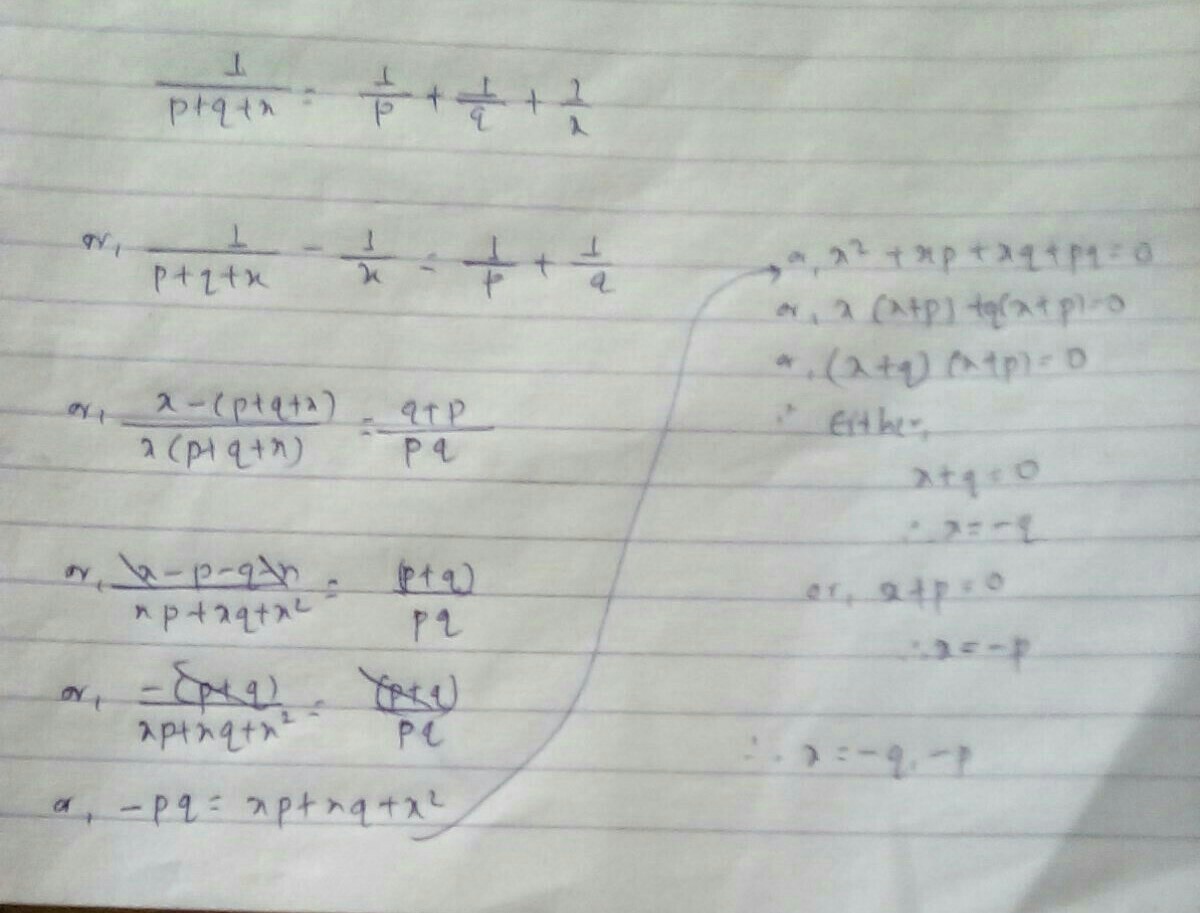 1/(p+q+x) = 1/p + 1/q + 1/x
or, 1/(p+q+x) - 1/x = 1/p + 1/q
or, (x-(p+q+x))/(x(p+q+x)) = (q+p)/(pq)
or, (x-p-q-x)/(xp+xq+x²) = (p+q)/(pq)
or, -(p+q)/(xp+xq+x²) = (p+q)/(pq)
or, -pq = xp+xq+x²
or, x²+xp+xq+pq=0
or, x(x+p)+q(x+p)=0
or, (x+q)(x+p)=0
∴ Either,
x+q=0
∴ x=-q
or, x+p=0
∴ x=-p
∴ x=-q,-p